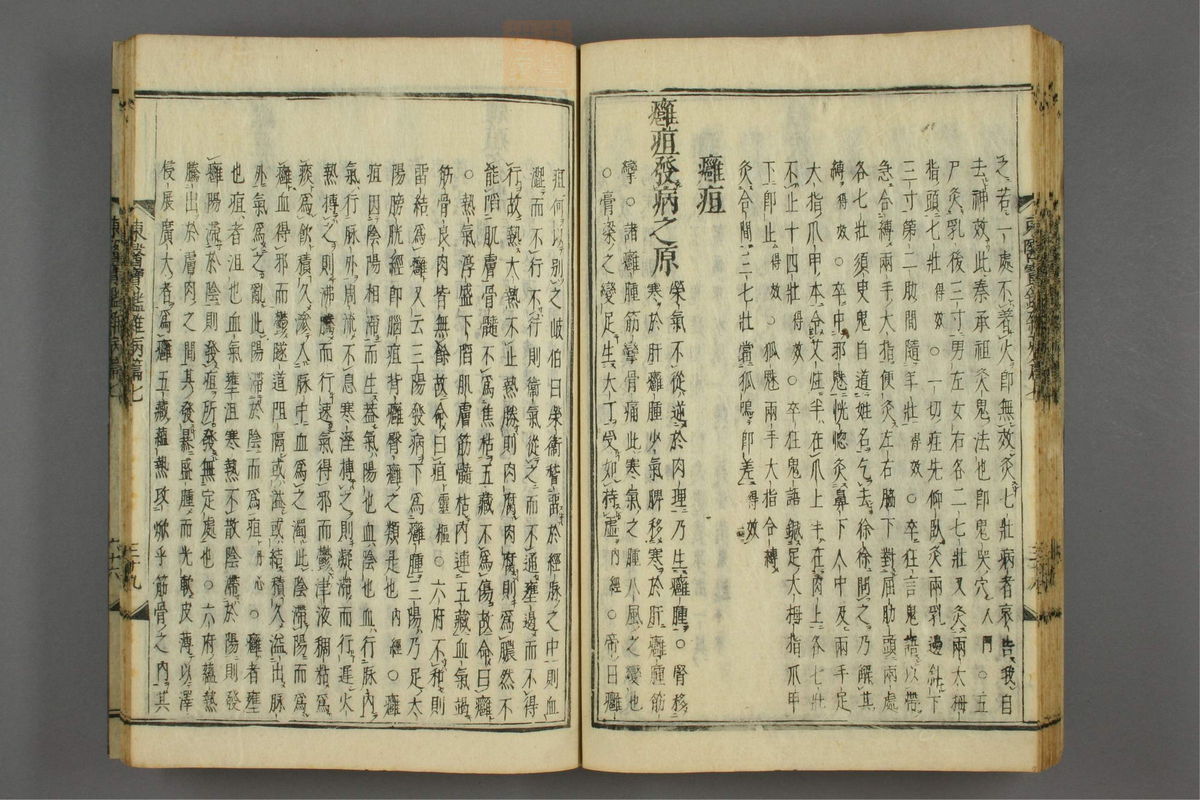 之若一處不着火即無效灸七壯病者哀告我自
去神效此秦承祖灸鬼法也即鬼哭穴入門○五
尸灸乳後三寸男左女右各二七壯又灸兩大拇
指頭七壯得效○一切疰先仰臥灸兩乳邊斜下
三寸第二肋間隨年壯得效○卒狂言鬼語以帶
急合縛兩手大指便灸左右脇下對屈肋頭兩處
各七壯須臾鬼自道姓名乞去徐徐問之乃解其
縛得效○卒中邪魅恍惚灸鼻下人中及兩手足
大指爪甲本令艾炷半在爪上半在肉上各七壯
不止十四壯得效○卒狂鬼語鍼足大拇指爪甲
下即止得效○狐魅兩手大指合縛
灸合間三七壯當狐鳴即差得效
癰疽
癰疽發病之原 榮氣不從逆於肉理乃生癰腫○腎移
寒於肝癰腫少氣脾移寒於肝癰腫筋
攣○諸癰腫筋攣骨痛此寒氣之腫八風之變也
○膏粱之變足生大丁受如持虛內經○帝曰癰
疽何以別之岐伯曰榮衛稽留於經脉之中則血
澁而不行不行則衛氣從之而不通壅遏而不得
行故熱大熱不止熱勝則肉腐肉腐則爲膿然不
能陷肌膚骨髓不爲焦枯五藏不爲傷故命曰癰
○熱氣淳盛下陷肌膚筋髓枯內連五藏血氣竭
筋骨良肉皆無餘故命曰疽靈樞○六府不和則
留結爲癰又云三陽發病下爲癰腫三陽乃足太
陽膀胱經即腦疽背癰臀癰之類是也內經○癰
疽因陰陽相滯而生盖氣陽也血陰也血行脉內
氣行脉外周流不息寒溼搏之則凝滯而行遲火
熱搏之則沸騰而行速氣得邪而鬱津液稠粘爲
痰爲飮積久滲入脉中血爲之濁此陰滯陽而爲
癰血得邪而鬱隧道阻隔或溢或結積久溢出脉
外氣爲之亂此陽滯於陰而爲疽丹心○癰者壅
也疽者沮也血氣壅沮寒熱不散陰滯於陽則發
癰陽滯於陰則發疽所發無定處也○六府蘊熱
騰出於膚肉之間其發暴盛腫而光軟皮薄以澤
侵展廣大者爲癰五藏蘊熱攻焮乎筋骨之內其
東醫寶鑑雜病篇七
三十九